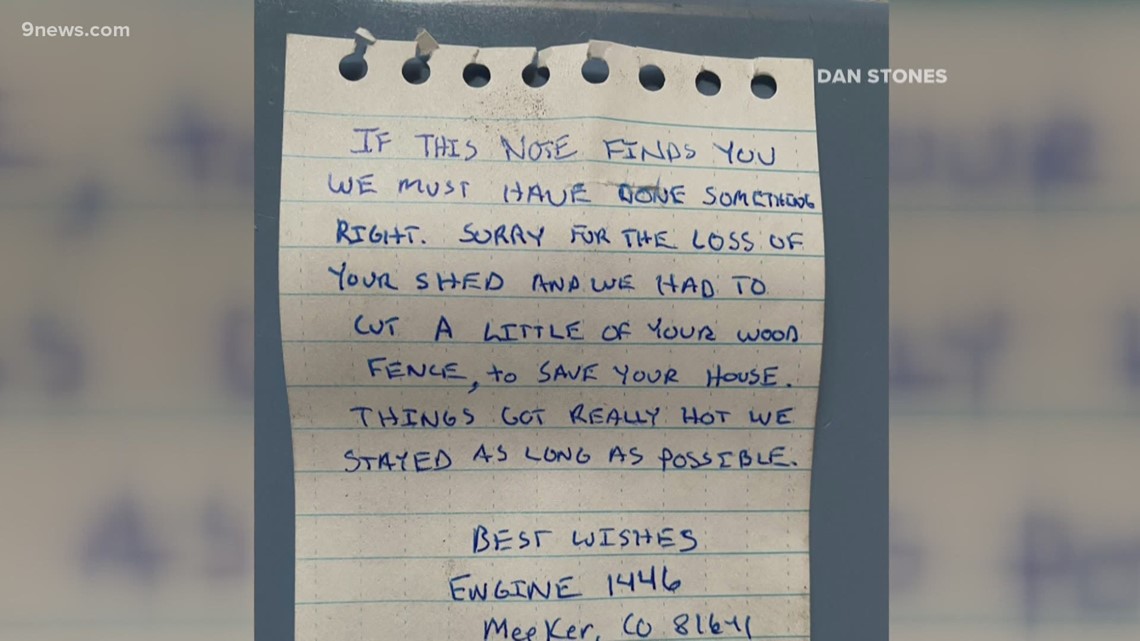 9news.com
DAN STONES
IF THIS NOTE FINDS YOU
WE MUST HAVE DONE SOMETHING
RIGHT. SORRY FOR THE LOSS OF
YOUR SHED AND WE HAD TO
CUT A LITTLE OF YOUR WOOD
FENCE, to SAVE YOUR HOUSE.
THINGS GOT REALLY HOT WE
STAYED AS LONG AS POSSIBLE.
BEST WISHES
ENGINE 1446
Meeker, CO 81641